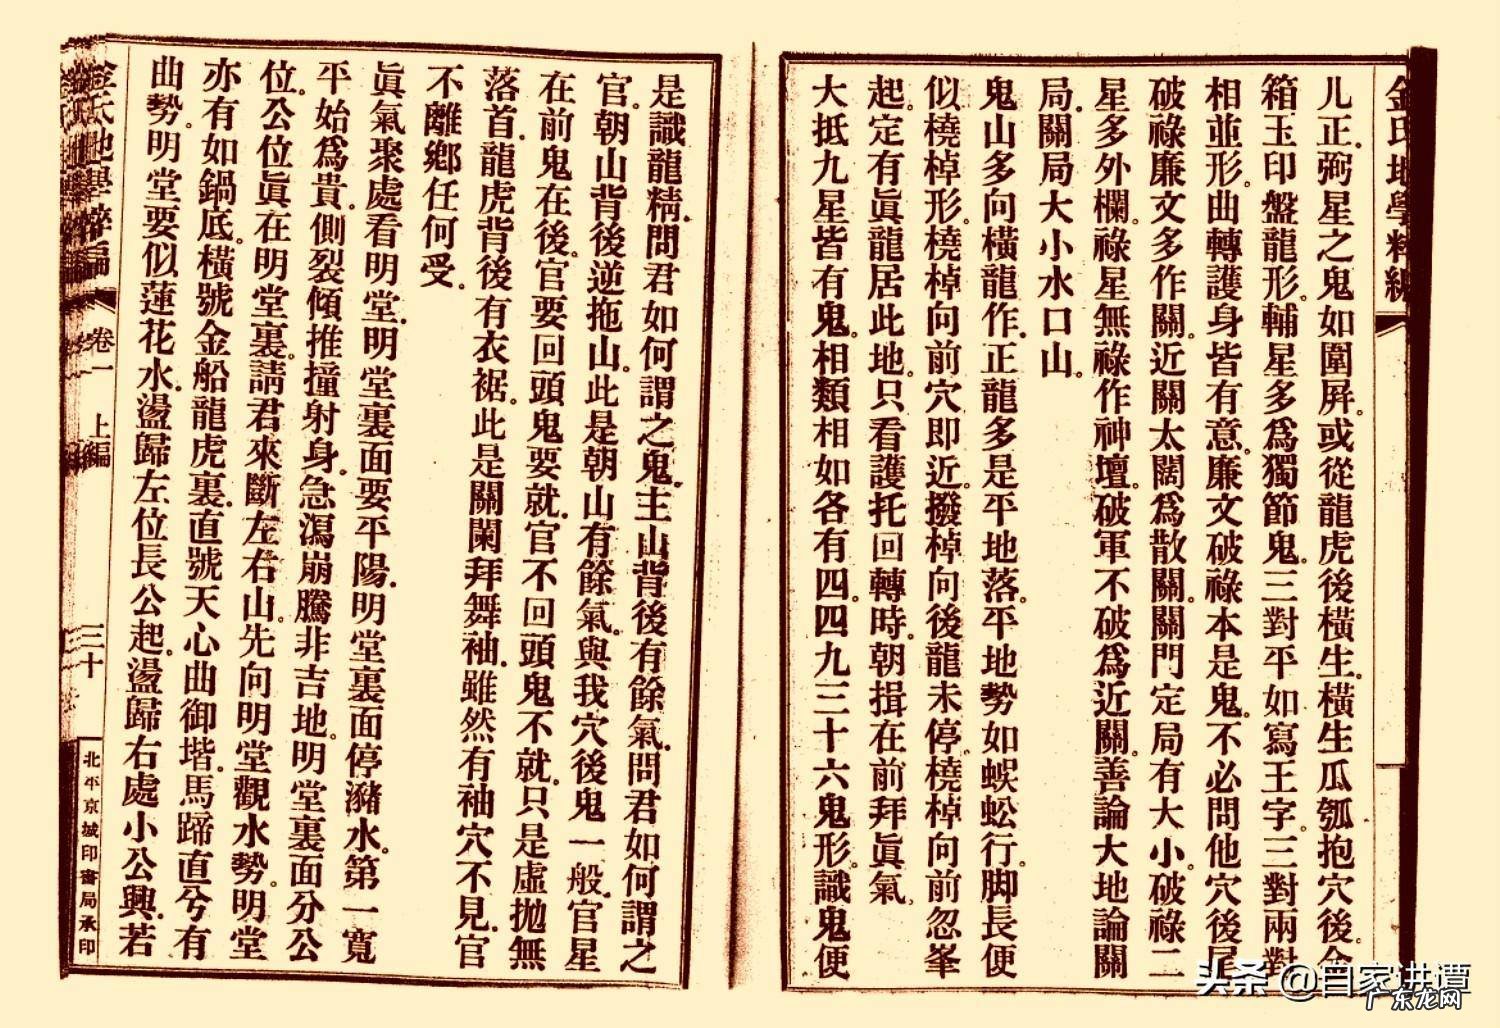 金氏地學粹編
儿正。弼星之鬼如圍屏。或從龍虎後橫生。橫生瓜瓠抱穴後。金
箱玉印盤龍形。輔星多爲獨節鬼。三對平如寫王字。三對兩對
相並形。曲轉護身皆有意。廉文破祿本是鬼。不必問他穴後尾
破祿廉文多作關。近關太闊爲散關。關門定局有大小。破祿二
星多外欄。祿星無祿作神壇。破軍不破爲近關。善論大地論關
局。關局大小水口山。
鬼山多向橫龍作。正龍多是平地落。平地勢如蜈蚣行。脚長便
似橈棹形。橈棹向前穴即近。撥棹向後龍未停。橈棹向前忽峯
起。定有眞龍居此地。只看護托回轉時。朝揖在前拜眞氣。
大抵九星皆有鬼。相類相如各有四。四九三十六鬼形。識鬼便
是識龍精。問君如何謂之鬼。主山背後有餘氣。問君如何謂之
官。朝山背後逆拖山。此是朝山有餘氣。與我穴後鬼一般。官星
在前鬼在後。官要回頭鬼要就。官不回頭鬼不就。只是虛抛無
落首。龍虎背後有衣裾。此是關闌拜舞袖。雖然有袖穴不見。官
不離鄉任何受。
眞氣聚處看明堂。明堂裏面要平陽。明堂裏面停瀦水。第一寬
平始爲貴。側裂傾推撞射身。急瀉崩騰非吉地。明堂裏面分公
位。公位眞在明堂裏。請君來斷左右山。先向明堂觀水勢。明堂
亦有如鍋底。橫號金船龍虎裏。直號天心曲御堦。馬蹄直兮有
曲勢。明堂要似蓮花水。盪歸左位長公起。盪歸右處小公興。若
金氏地學粹編 卷一 上編 三十 北平京城印書局承印
头条 @自家讲谭
广东龙网